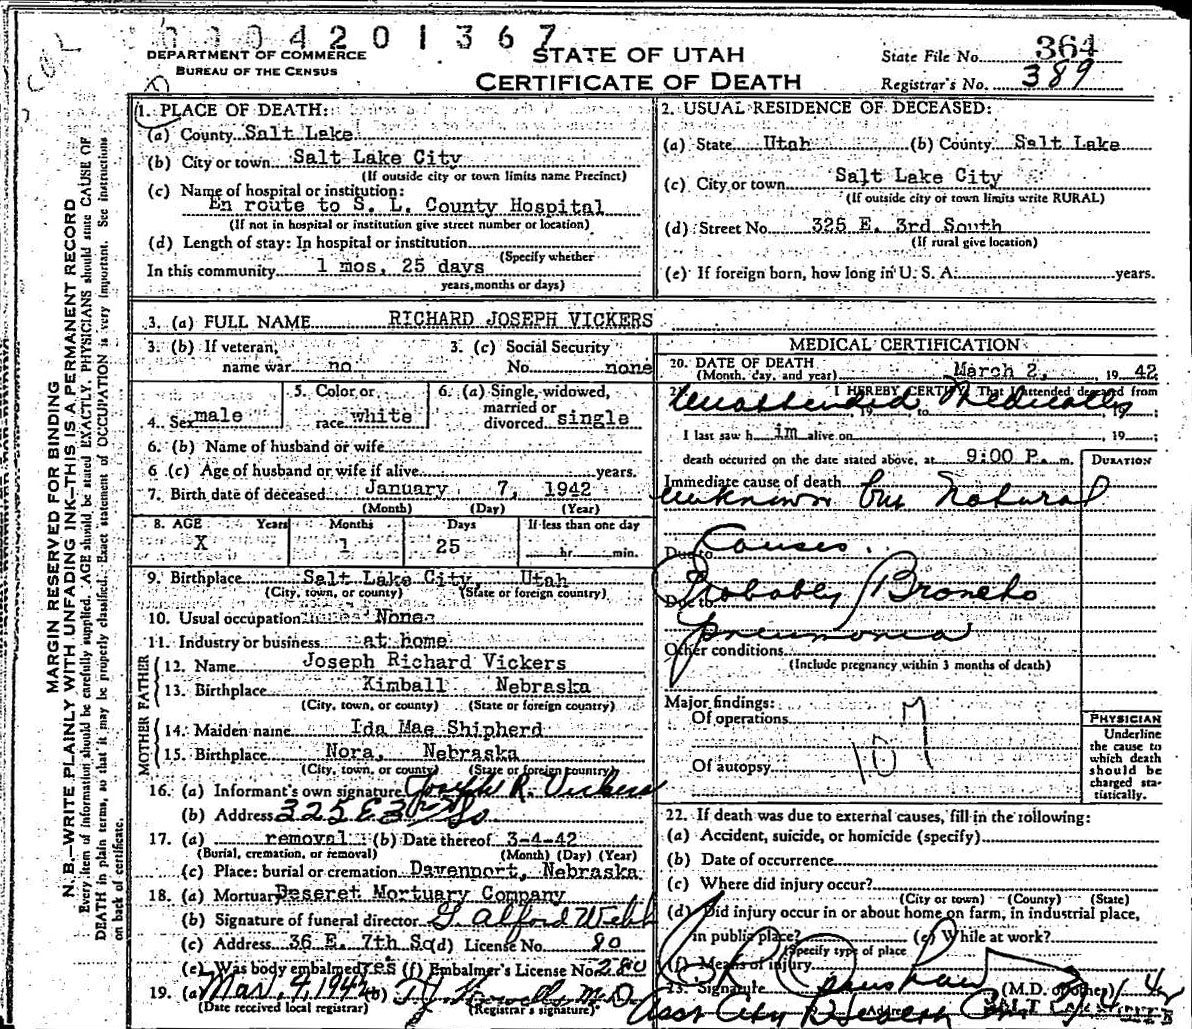 0004201367
DEPARTMENT OF COMMERCE
BUREAU OF THE CENSUS
STATE OF UTAH
CERTIFICATE OF DEATH
State File No. 364
Registrar's No. 389
MARGIN RESERVED FOR BINDING
N. B.—WRITE PLAINLY WITH UNFADING INK—THIS IS A PERMANENT RECORD
Every item of information should be carefully supplied. AGE should be stated EXACTLY. PHYSICIANS should state CAUSE OF
DEATH in plain terms, so that it may be properly classified. Exact statement of OCCUPATION is very important. See instructions
on back of certificate.
1. PLACE OF DEATH:
(a) County Salt Lake
(b) City or town Salt Lake City
(If outside city or town limits name Precinct)
(c) Name of hospital or institution:
En route to S. L. County Hospital
(If not in hospital or institution give street number or location)
(d) Length of stay: In hospital or institution
(Specify whether
In this community 1 mos, 25 days
years, months or days)
2. USUAL RESIDENCE OF DECEASED:
(a) State Utah (b) County Salt Lake
(c) City or town Salt Lake City
(If outside city or town limits write RURAL)
(d) Street No. 325 E. 3rd South
(If rural give location)
(e) If foreign born, how long in U. S. A. years.
3. (a) FULL NAME RICHARD JOSEPH VICKERS
3. (b) If veteran,
name war no
3. (c) Social Security
No. none
4. Sex male
5. Color or
race white
6. (a) Single, widowed,
married or
divorced single
6. (b) Name of husband or wife
6 (c) Age of husband or wife if alive years.
7. Birth date of deceased January 7, 1942
(Month) (Day) (Year)
8. AGE Years Months Days If less than one day
X 1 25 hr. min.
9. Birthplace Salt Lake City, Utah
(City, town, or county) (State or foreign country)
10. Usual occupation None
11. Industry or business at home
FATHER
12. Name Joseph Richard Vickers
13. Birthplace Kimball Nebraska
(City, town, or county) (State or foreign country)
MOTHER
14. Maiden name Ida Mae Shipherd
15. Birthplace Nora, Nebraska
(City, town, or county) (State or foreign country)
16. (a) Informant's own signature Joseph R. Vickers
(b) Address 325 E 3rd So
17. (a) removal (b) Date thereof 3-4-42
(Burial, cremation, or removal) (Month) (Day) (Year)
(c) Place: burial or cremation Davenport, Nebraska
18. (a) Mortuary Deseret Mortuary Company
(b) Signature of funeral director G. Alford Webb
(c) Address 36 E. 7th So (d) License No. 80
(e) Was body embalmed yes (f) Embalmer's License No. 280
19. (a) Mar. 4, 1942 (b) M.D.
(Date received local registrar) (Registrar's signature)
MEDICAL CERTIFICATION
20. DATE OF DEATH
(Month, day, and year) March 2, 19 42
21. I HEREBY CERTIFY, That I attended deceased from
Unattended Medically
19 to 19
I last saw him alive on , 19 ;
death occurred on the date stated above, at 9:00 P. m.
DURATION
Immediate cause of death
Unknown but Natural
Due to Causes.
Due to Probably Broncho
pneumonia
Other conditions
(Include pregnancy within 3 months of death)
Major findings:
Of operations
107
Of autopsy
PHYSICIAN
Underline
the cause to
which death
should be
charged sta-
tistically.
22. If death was due to external causes, fill in the following:
(a) Accident, suicide, or homicide (specify)
(b) Date of occurrence
(c) Where did injury occur?
(City or town) (County) (State)
(d) Did injury occur in or about home on farm, in industrial place,
in public place? (e) While at work?
(Specify type of place
(f) Means of injury
23. Signature (M.D. or other)
Asst City Health
Address